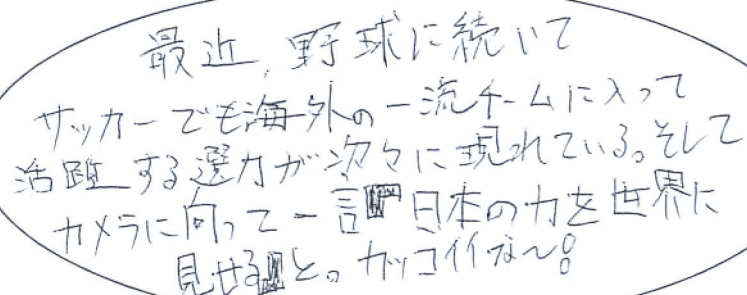 最近、野球に続いて
サッカーでも海外の一流チームに入って
活躍する選力が次々に現れている。そして
カメラに向って一言 日本の力を世界に
見せると。カッコイイな〜!